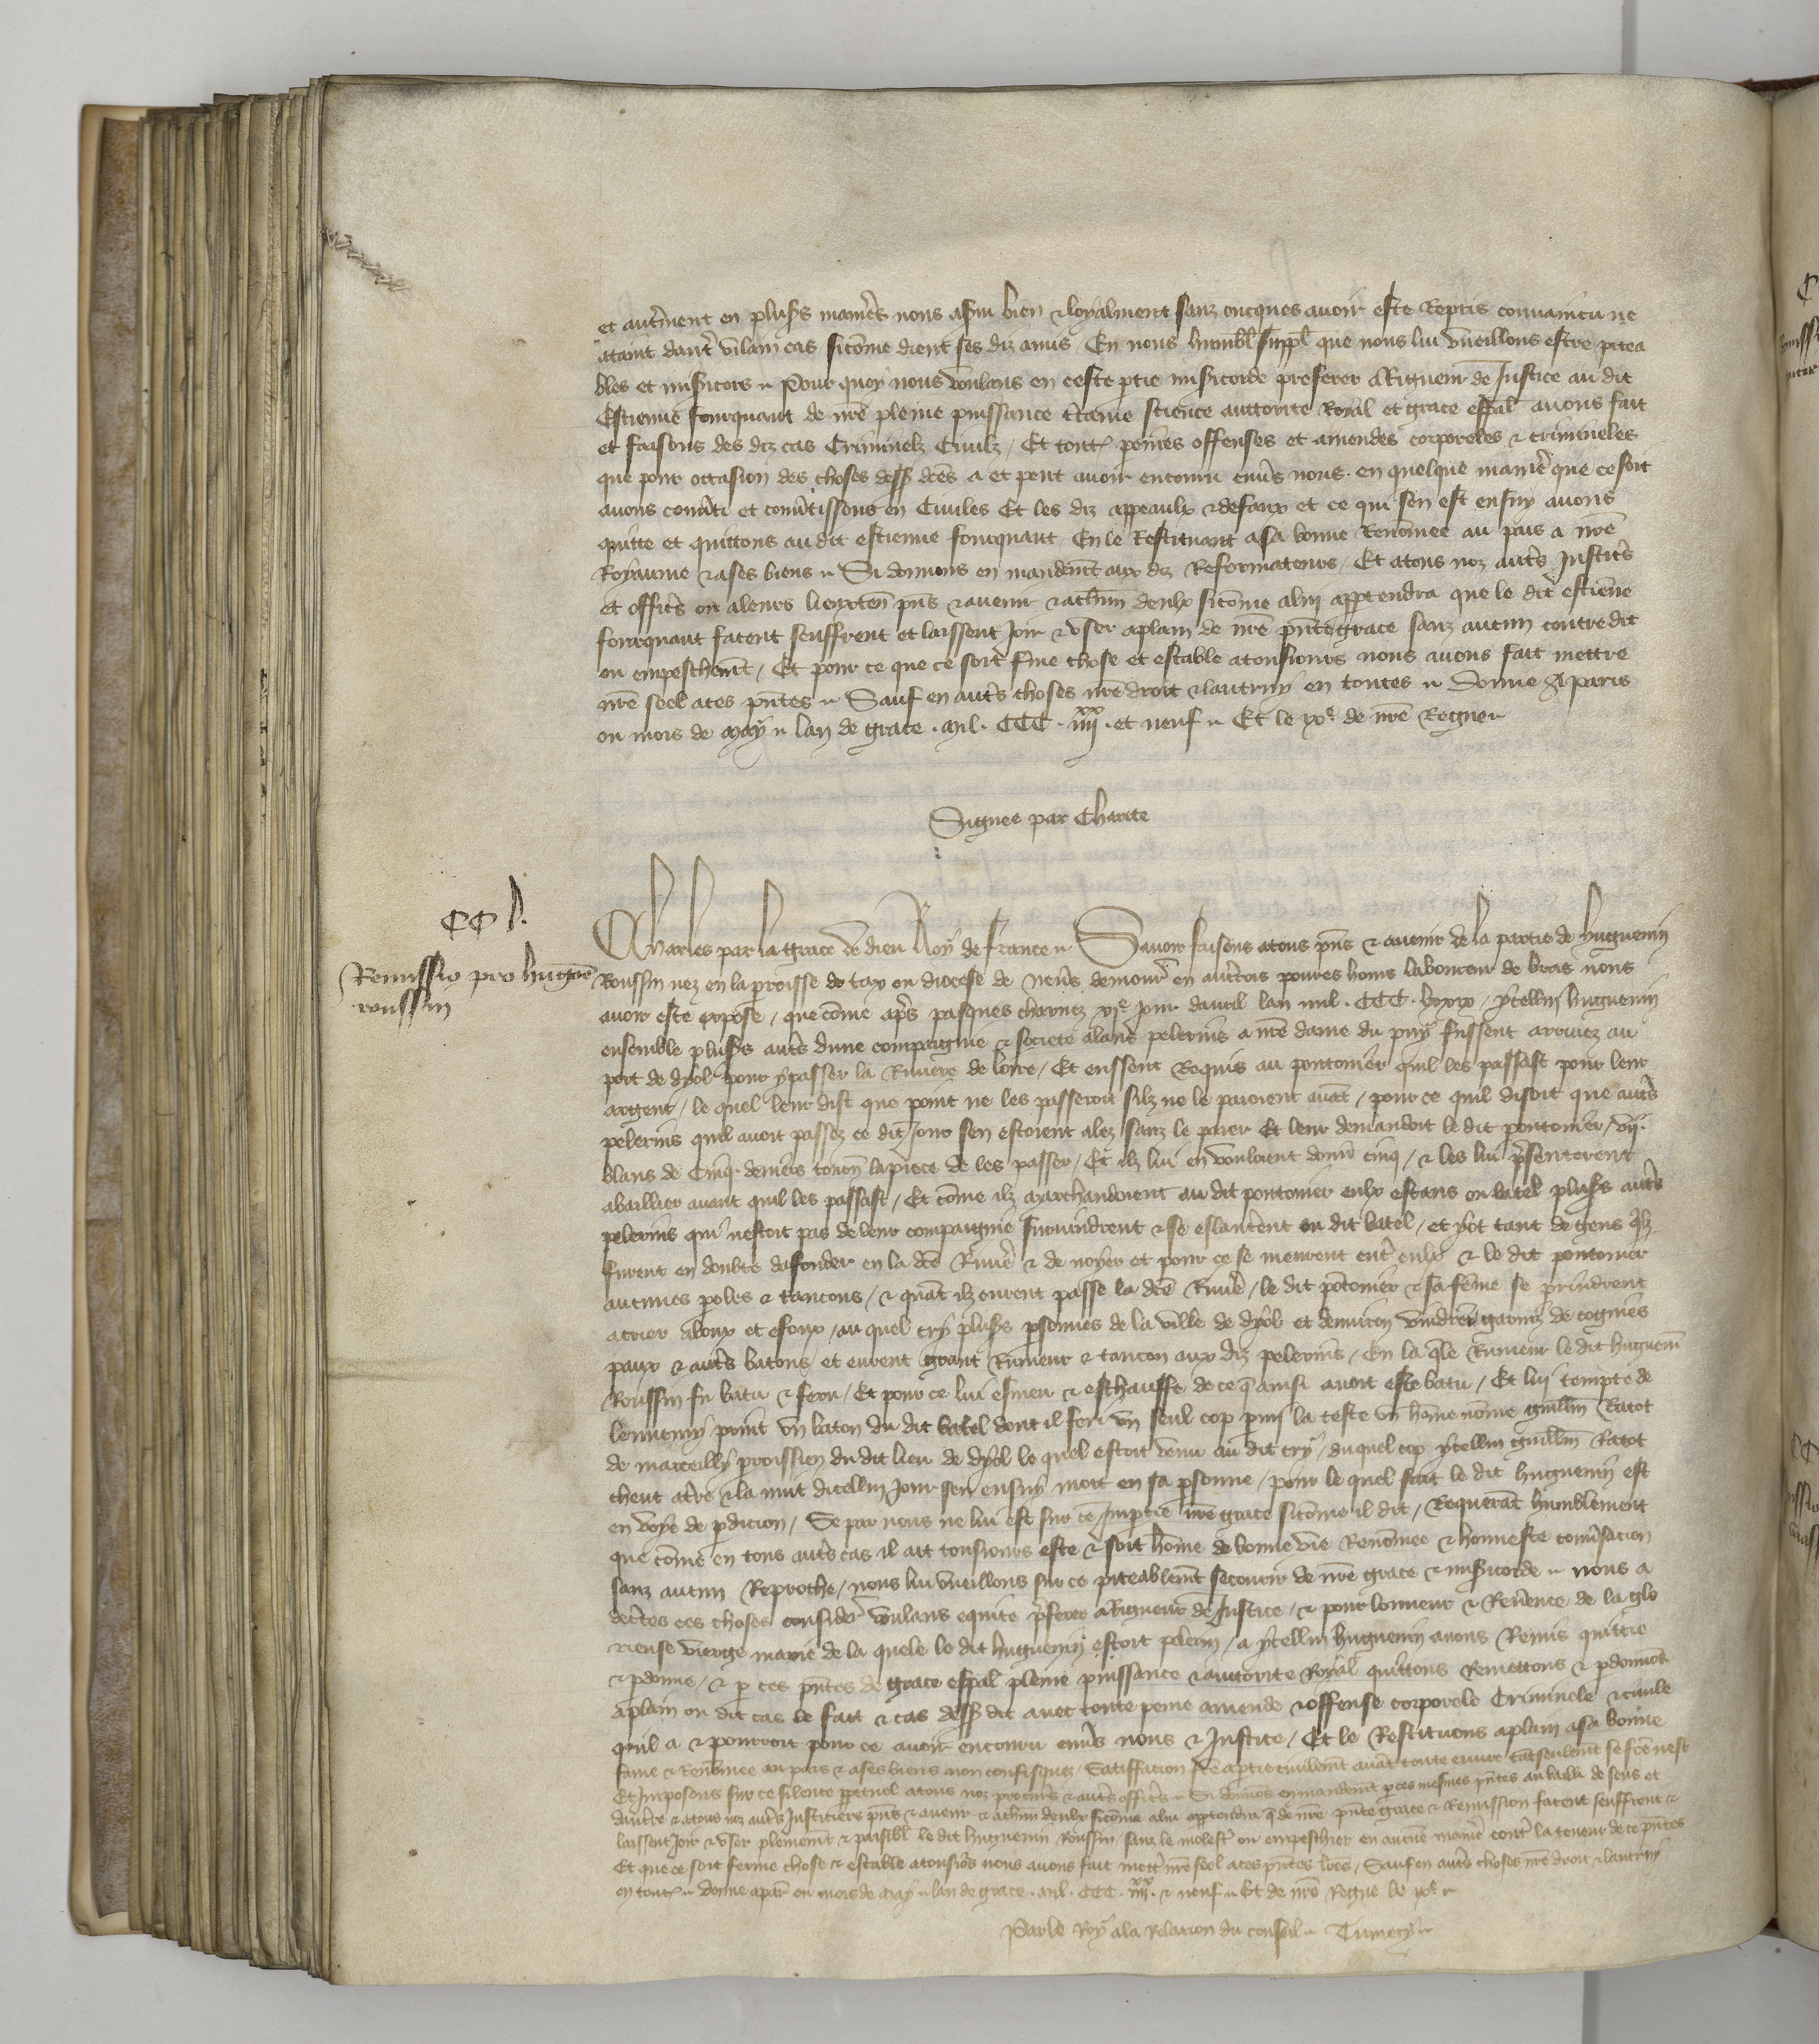 et autrement en plusrs manieres nous a servi bien et loyalment sanz oncques avoir este Repris convaincu ne
ataint dautre vilain cas sicome dient ses diz amis En nous humblt suppl que nous lui vueillons estre pitea
bles et misicors Pour quoy nous voulans en ceste ptie misicorde preferer a Rigueur de Justice au dit
Estienne fourquaut de nre pleine puissance ctaine science auttorite Royal et grace espal avons fait
et faisons des diz cas Criminelz Civilz / Et toutes peines offenses et amendes corporeles et crimineles
que pour occasion des choses dess dces a et peut avoir encouru envs nous en quelque maniere que ce soit
avons convti et convtissons en Civiles Et les diz appeaulx et defaux et ce qui sen est ensuy avons
quitte et quittons au dit estienne fourquaut En le Restituant a sa bonne Renomee au pais a nre
Royaume et a ses biens Si donnons en mandemt aux diz Reformateurs / Et a tous noz auts Justicrs
et officrs ou a leurs lieuxten pns et avenir et a chun deulx sicome a lui apptendra que le dit estiene
fourquaut facent seuffrent et laissent Joir et user a plain de nre pnte grace sanz aucun contredit
ou empeschemt / Et pour ce que ce soit fme chose et estable a tousiours nous avons fait mettre
nre seel a ces pntes Sauf en auts choses nre droit et lautruy en toutes Donne A paris
ou mois de May lan de grace mil CCC iiiixx et neuf Et le ixe de nre Regne
Signee par Charite
CC l.
Remissio pro hugoe
roussin
Charles par la grace de dieu Roy de france Savoir faisons a tous pns et avenir de la partie de huguenin
Roussin nez en la proisse de tax ou diocese de nevs demour en aucrois poures homs laboureur de bras nous
avoir este expose / que come aps pasques charnez xie jour davril lan mil CCC iiiixx / ycellui huguenin
ensemble plusrs auts dune compaignie et societe alans pelerins a nre dame du puy fussent arrivez au
port de dyol pour y passer la Riviere de loire / Et eussent Requis au pontonier quil les passast pour leur
argent / le quel leur dist que point ne les passeroit silz ne le paioient avat / pour ce quil disoit que auts
pelerins quil avoit passez ce dit Jour sen estoient alez sanz le paier Et leur demandoit le dit pontonier / vii
blans de Cinq deniers tourn la piece de les passer / Et ilz lui en vouloient donner cinq / et les lui psenterent
a baillier avant quil les passast / Et come ilz marchandoient au dit pontonier eulx estans ou batel plusrs auts
pelerins qui nestoit pas de leur compaignie survindrent et se eslancerent ou dit batel / et y ot tant de gens qlz
furent en doubte dafonder en la dce Riviere et de noyer et pour ce se meurent entre eulx et le dit pontonier
aucunes peles et tancons / et quat ilz eurent passe la dce Riviere / le dit potonier et sa feme se prindrent
a crier aboux et efoux / au quel cry plusrs psonnes de la ville de dyol et denviron vindrent garniz de cognies
paux et auts batons et eurent grant Rumeur et tancon aux diz pelerins / En la qle Rumeur le dit huguenin
Roussin fu batu et feru / Et pour ce lui esmeu et eschauffe de ce q ainsi avoit este batu / Et lui tempte de
lennemy print un baton du dit batel dont il feri un seul cop pmi la teste un home nome guillm Ratot
de marcilly proissien du dit lieu de dyol le quel estoit venu au dit cry / du quel cop ycellui guillm Ratot
cheut a tre et la nuit dicellui Jour sen ensuy mort en sa psonne / pour le quel fait le dit huguenin est
en voye de pdicion / Se par nous ne lui est sur ce Impartie nre grace sicome il dit / Requerat humblement
que come en tous auts cas il ait tousiours este et soit home de bonne vie Renomee et honneste convsacion
sanz aucun Reproche / nous lui vueillons sur ce piteablemt secourir de nre grace et misicorde nous a
dectes ces choses consider voulans equite pferer a Rigueur de Justice / et pour lonneur et Revence de la glo
rieuse vierge marie de la quele le dit huguenin estoit pelerin / a ycellui huguenin avons Remis quittie
et pdonne / et p ces pntes de grace espal pleine puissance et auttorite Royal quittons Remettons et pdonnons
a plain ou dit cas le fait et cas dess dit avec toute peine amende et offense corporele Criminele et civile
quil a et pourroit pour ce avoir encouru envs nous et Justice / Et le Restituons a plain a sa bonne
fame et Renomee au pais et a ses biens non confisquez / Satiffacion fce a ptie civilemt avat toute euvre tatseulemt se fce nest
Et Imposons sur ce silence ppetuel a tous noz procurs et auts officrs Si donnos en mandemt p ces mesmes pntes au bailli de sens et
dauxre et a tous noz auts Justiciers pns et avenir et a chun deulx sicome a lui apptendra q de nre pnte grace et Remission facent seuffrent et
laissent Joir et user plainemt et paisiblt le dit huguenin Roussin sanz le molest ou empeschier en aucune maniere contr la teneur de ce pntes
Et que ce soit ferme chose et estable a tousiors nous avons fait mettr nre seel a ces pntes lres / Sauf en auts choses nre droit et lautruy
en toutes donne a par ou mois de May lan de grace mil CCC iiiixx et neuf Et de nre Regne le ixe
Par le Roy a la Relacion du conseil